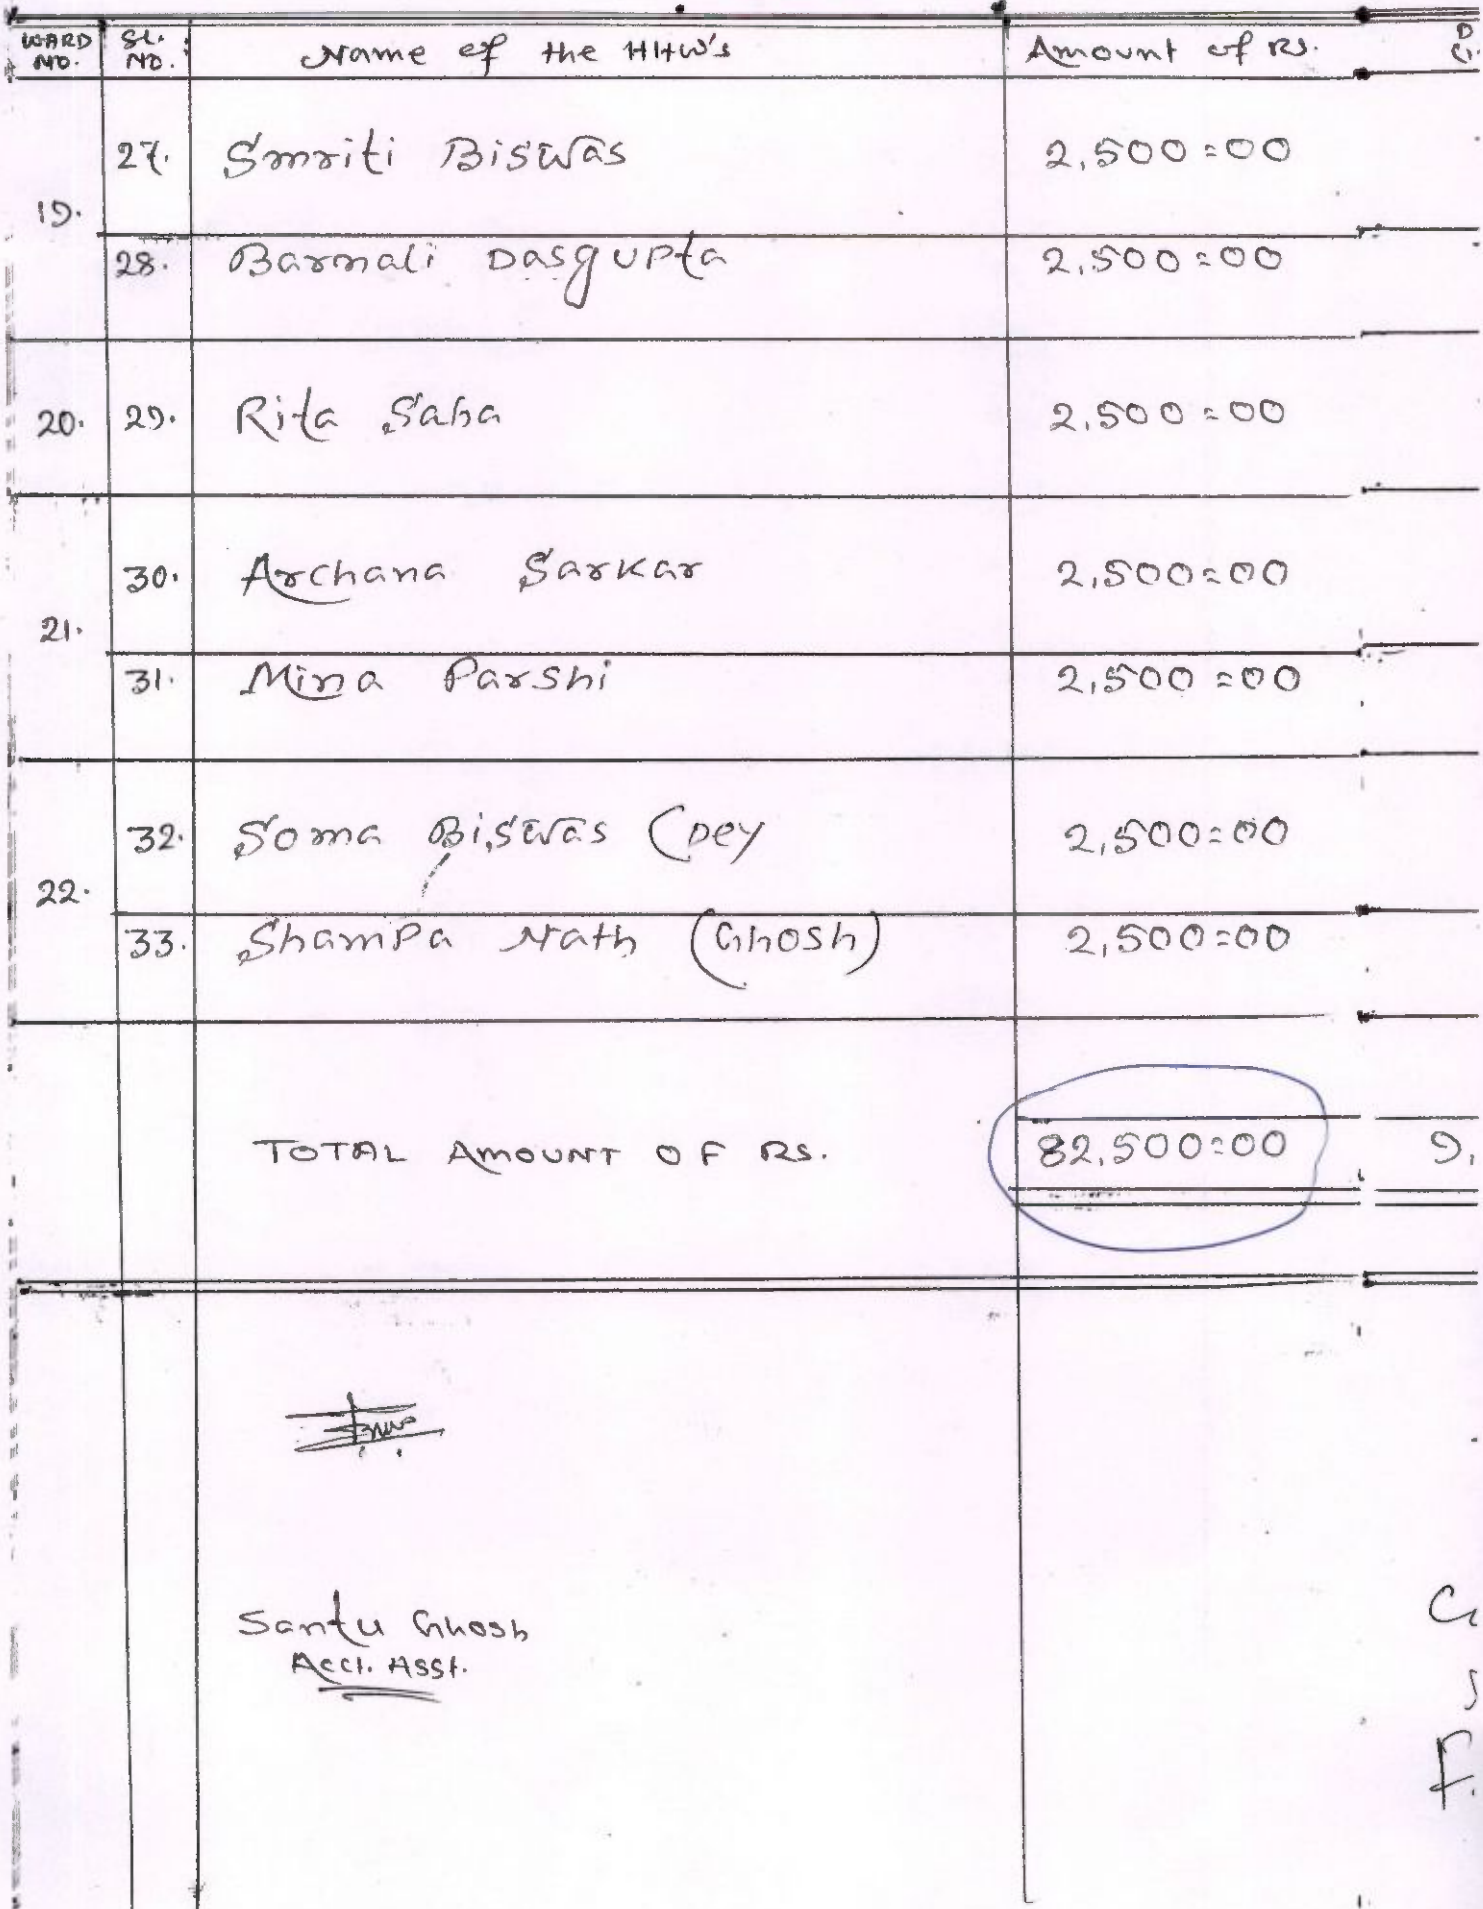 WARD NO. SL. NO. Name of the HHW's Amount of Rs.
27. Smriti Biswas 2,500=00
19.
28. Barnali Dasgupta 2,500=00
20. 29. Rita Saha 2,500=00
30. Archana Sarkar 2,500=00
21.
31. Mina Parshi 2,500=00
32. Soma Biswas (Dey 2,500=00
22.
33. Shampa Nath (Ghosh) 2,500=00
TOTAL AMOUNT OF RS. 82,500=00 9,
Santu Ghosh
Acct. Asst.
F.